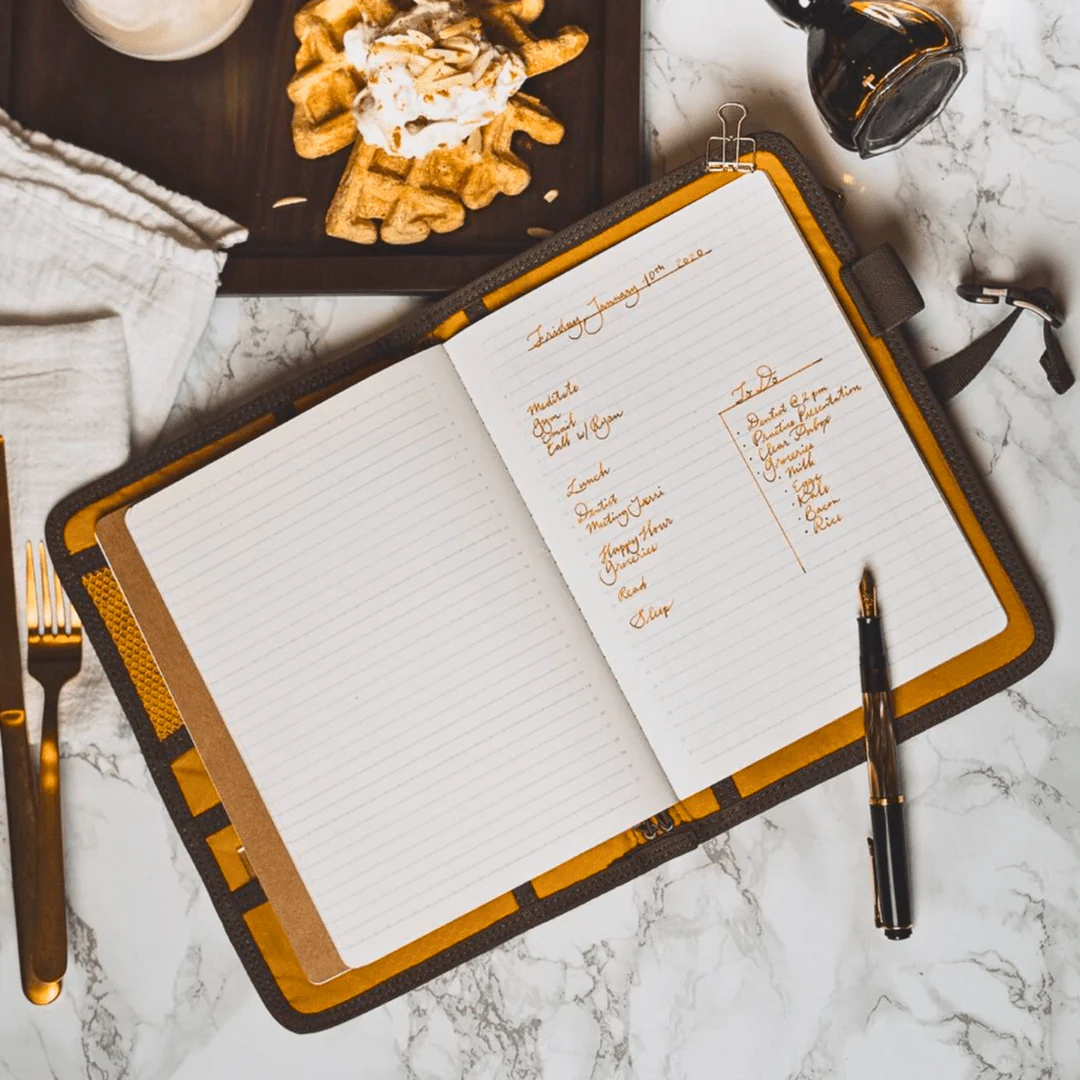 Friday, January 10th 2020
Meditate
Gym
Email
Call w/ Ryan
Lunch
Dentist
Meeting Jarri
Happy Hour
Groceries
Read
Sleep
To Do
· Dentist @ 2 pm
· Practice Presentation
· Clear Inbox
· Groceries
· Milk
· Eggs
· Kale
· Bacon
· Rice